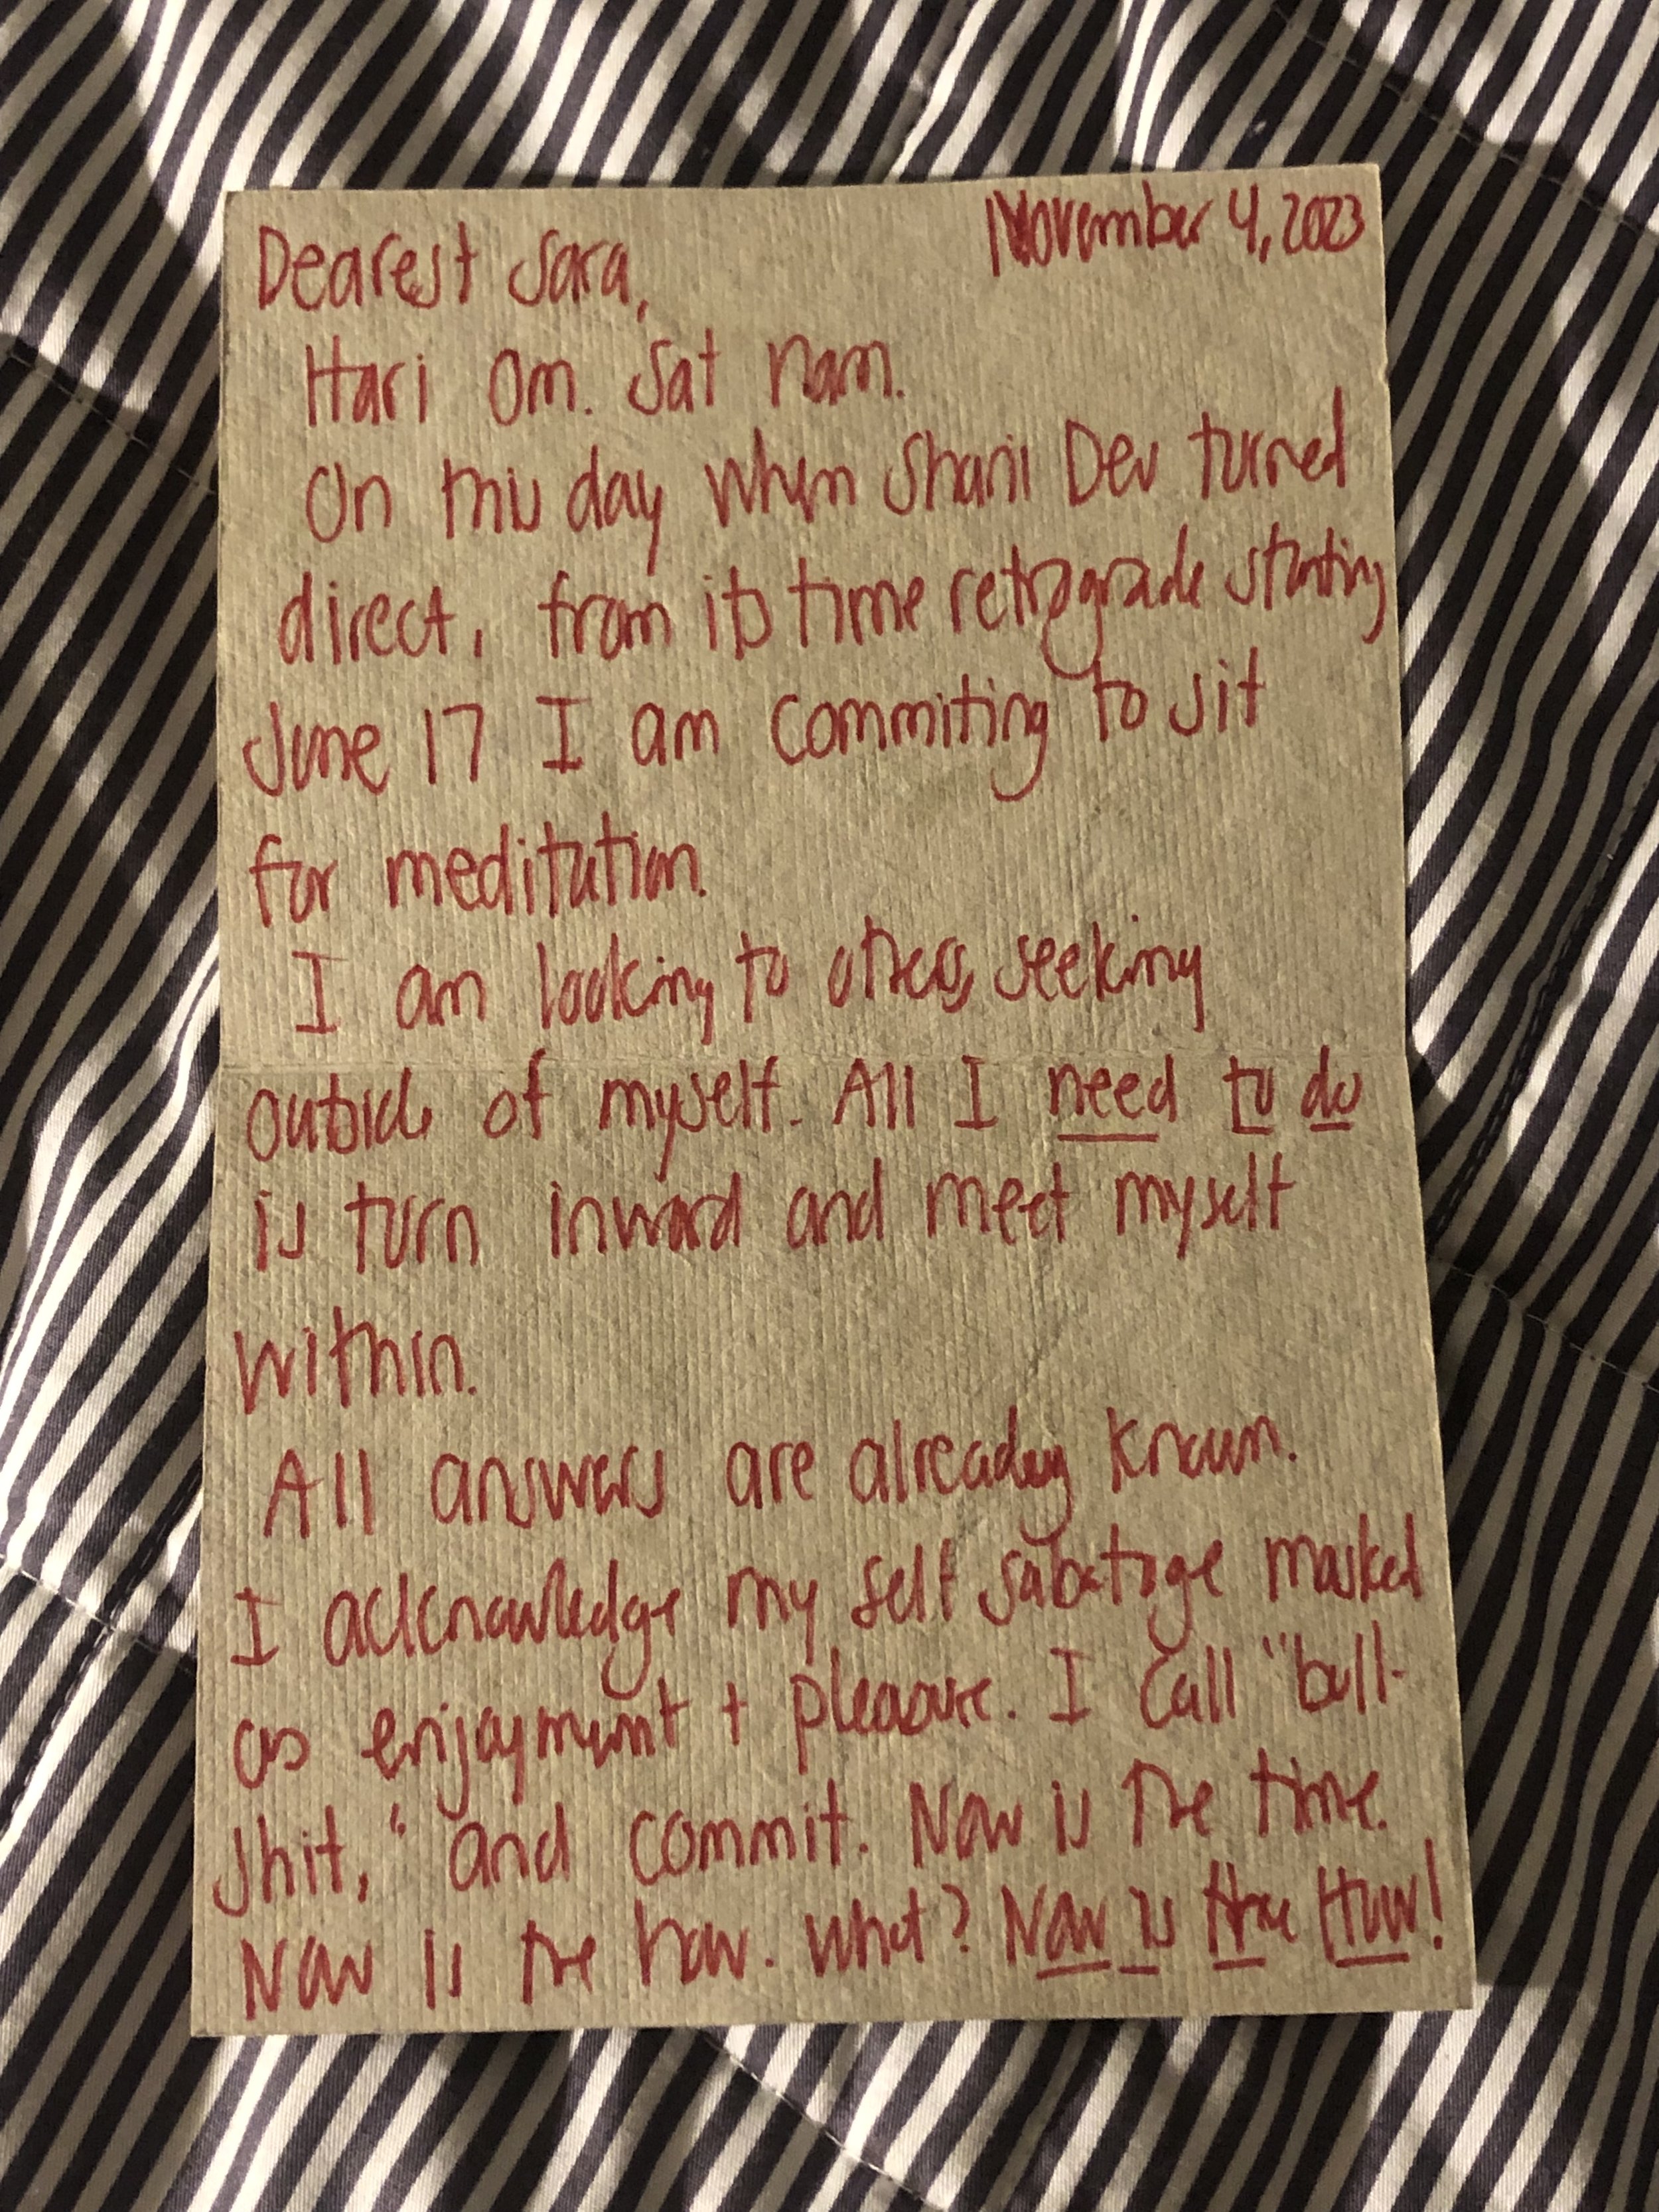 November 4, 2023
Dearest Sara,
Hari Om. Sat Nam.
On this day when Shani Dev turned
direct, from its time retrograde starting
June 17 I am commiting to sit
for meditation.
I am looking to others, seeking
outside of myself. All I need to do
is turn inward and meet myself
within.
All answers are already known.
I acknowledge my self sabotage masked
as enjoyment + pleasure. I call "bull-
shit," and commit. Now is the time.
Now is the how. What? Now is the How!